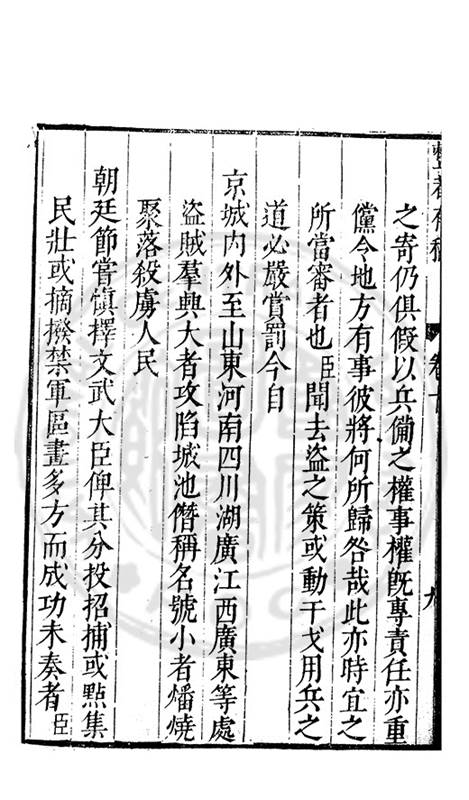 卷十
九
之寄仍俱假以兵備之權事權既專責任亦重
儻令地方有事彼將何所歸咎哉此亦時宜之
所當審者也臣聞去盜之策或動干戈用兵之
道必嚴賞罰今自
京城內外至山東河南四川湖廣江西廣東等處
盜賊羣興大者攻陷城池僭稱名號小者燔燒
聚落殺虜人民
朝廷節嘗慎擇文武大臣俾其分投招捕或點集
民壯或摘撥禁軍區畫多方而成功未奏者臣